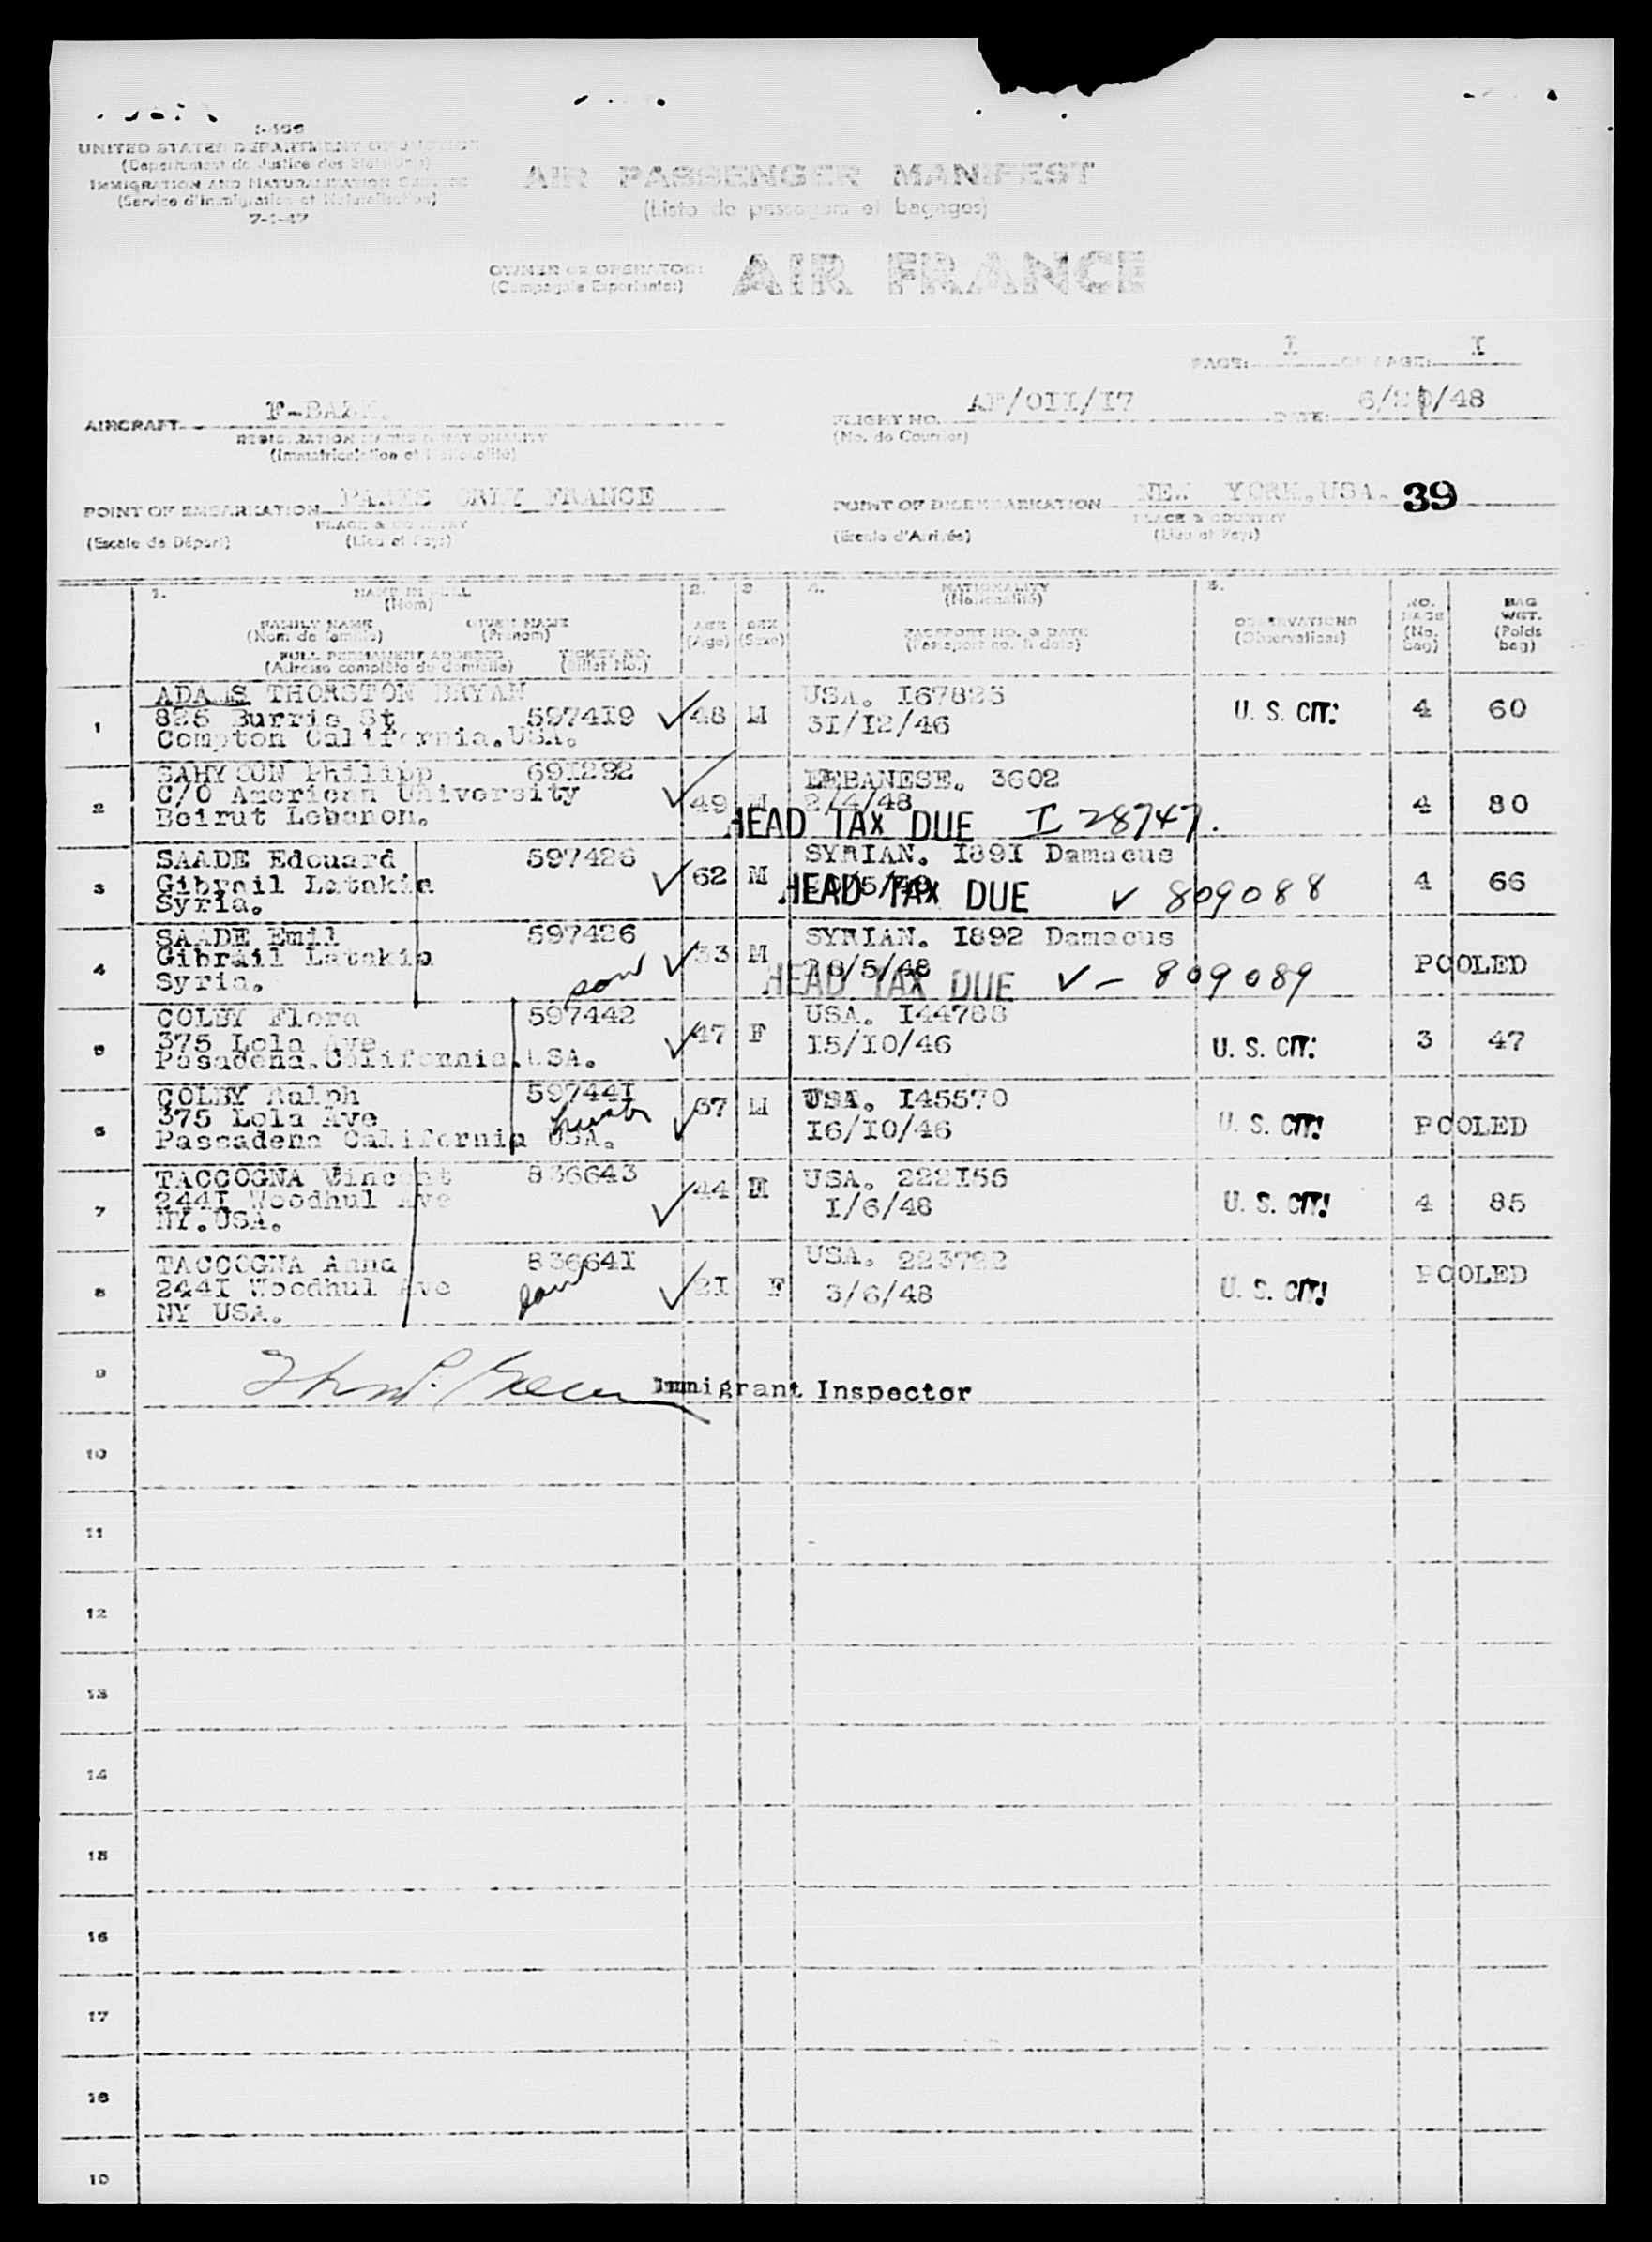 I-466
UNITED STATES DEPARTMENT OF JUSTICE
(Département de Justice des Etats-Unis)
IMMIGRATION AND NATURALIZATION SERVICE
(Service d'immigration et Naturalisation)
7-1-47
AIR PASSENGER MANIFEST
(Liste de passagers et bagages)
OWNER OR OPERATOR:
AIR FRANCE
PAGE: I OF PAGE: I
AIRCRAFT
REGISTRATION MARKS & NATIONALITY
(Immatriculation et Nationalité)
FLIGHT NO. AF/OII/I7 DATE: /48
(No. de Courrier)
POINT OF EMBARKATION PARIS ORLY FRANCE
PLACE & COUNTRY
(Escale de Départ) (Lieu et Pays)
POINT OF DISEMBARKATION NEW YORK, USA. 39
PLACE & COUNTRY
(Escale d'Arrivée) (Lieu et Pays)
1. NAME IN FULL
(Nom)
FAMILY NAME GIVEN NAME
(Nom de famille) (Prénom)
FULL PERMANENT ADDRESS TICKET NO.
(Adresse complète du domicile) (Billet No.)
2. AGE
(Age)
3 SEX
(Sexe)
4. NATIONALITY
(Nationalité)
PASSPORT NO. & DATE
(Passeport no. & date)
5. OBSERVATIONS
(Observations)
NO. BAGS
(No. bag)
BAG WGT.
(Poids bag)
1 ADAMS THORSTON BRYAN 48 M USA. I67825 U. S. CIT. 4 60
825 Burris St 5974I9 3I/I2/46
Compton California.USA.
2 SAHYOUN Philipp 69I292 49 M LEBANESE. 3602 4 80
C/O American University 2/4/48
Beirut Lebanon. HEAD TAX DUE I 28747.
3 SAADE Edouard 597426 62 M SYRIAN. I89I Damacus 4 66
Gibrail Latakia HEAD TAX DUE ✓ 809088
Syria.
4 SAADE Emil 597426 33 M SYRIAN. I892 Damacus POOLED
Gibrail Latakia /5/48
Syria. son HEAD TAX DUE ✓ – 809089
5 COLBY Flora 597442 47 F USA. I44788 U. S. CIT. 3 47
375 Lola Ave I5/I0/46
Pasadena.California.USA.
6 COLBY Ralph 59744I 67 M USA. I45570 U. S. CIT. POOLED
375 Lola Ave I6/I0/46
Passadena California USA.
7 TACCOGNA Vincent 836643 44 M USA. 222I56 U. S. CIT. 4 85
244I Woodhul Ave I/6/48
NY.USA.
8 TACCOGNA Anna 83664I 2I F USA. 223722 U. S. CIT. POOLED
244I Woodhul Ave 3/6/48
NY USA.
9 Immigrant Inspector
10
11
12
13
14
15
16
17
18
19